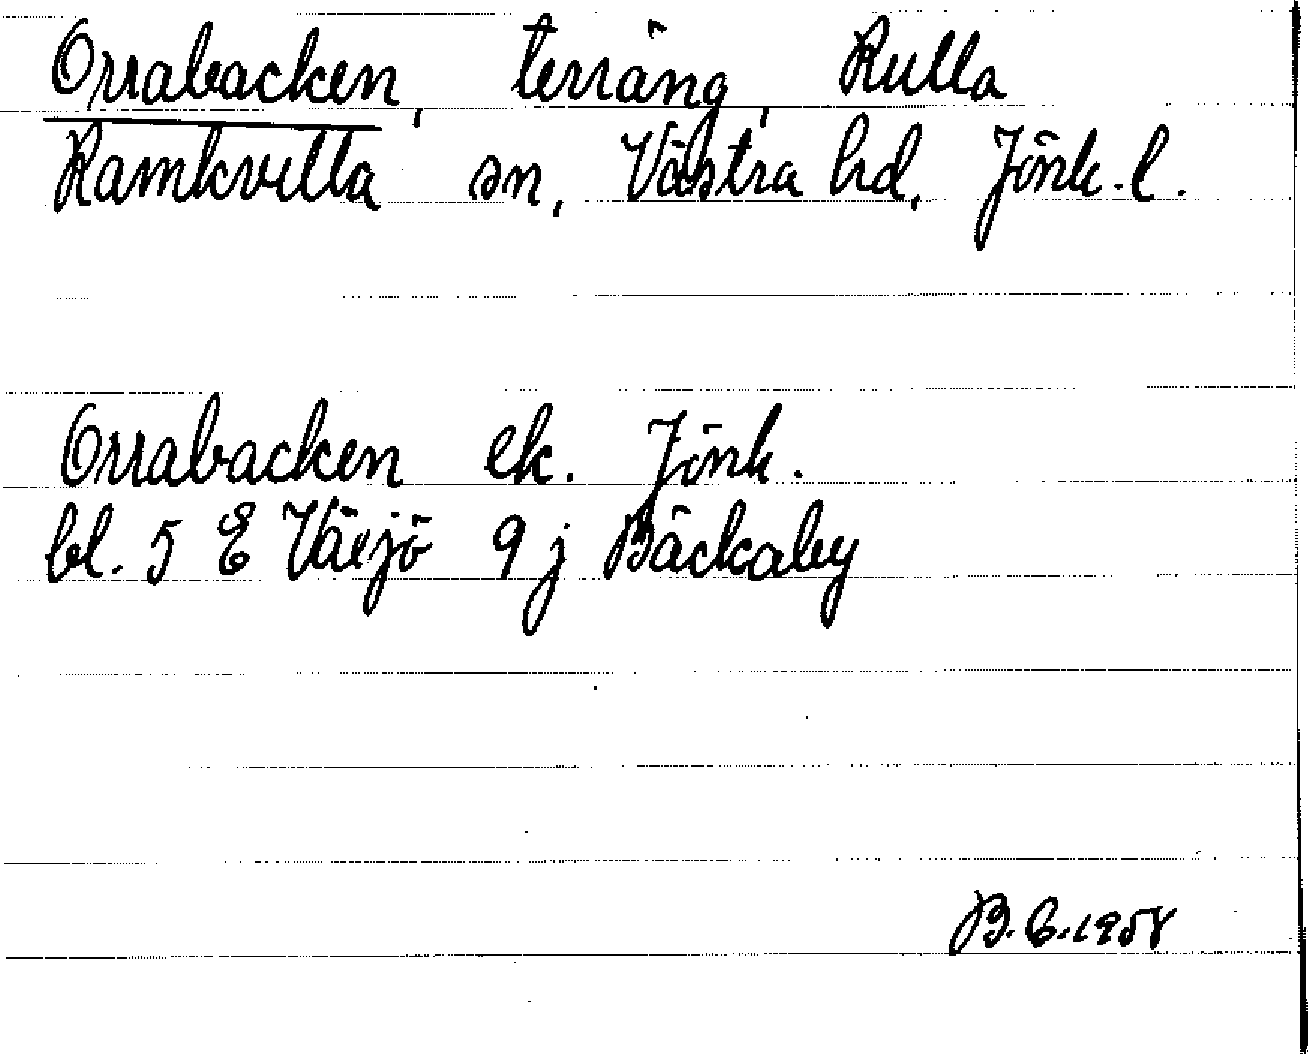 Orrabacken, terräng, Rulla
Ramkvilla sn, Västra hd, Jönk. l.
Orrabacken ek. Jönk.
bl. 5 E Växjö 9 j Bäckaby
B. E. 1958